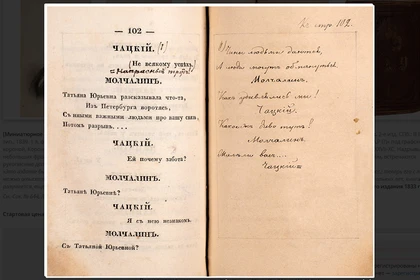 — 102 —
ЧАЦКІЙ. (1)
(Не всякому успѣхъ!
МОЛЧАЛИНЪ.
Татьяна Юрьевна разсказывала что-то,
Изъ Петербурга воротясь,
Съ иными важными людьми про вашу связь,
Потомъ разрывъ....
ЧАЦКІЙ.
Ей почему забота?
МОЛЧАЛИНЪ.
Татьянѣ Юрьевнѣ?
ЧАЦКІЙ.
Я съ нею незнакомъ.
МОЛЧАЛИНЪ.
Съ Татьяной Юрьевной?
Къ стр. 102.
1) Чины людьми даются,
А люди могутъ обмануться.
Молчалинъ.
Какъ удивлялись мы!
Чацкій.
Какоежъ диво тутъ?
Молчалинъ.
Жалѣли васъ...
Чацкій